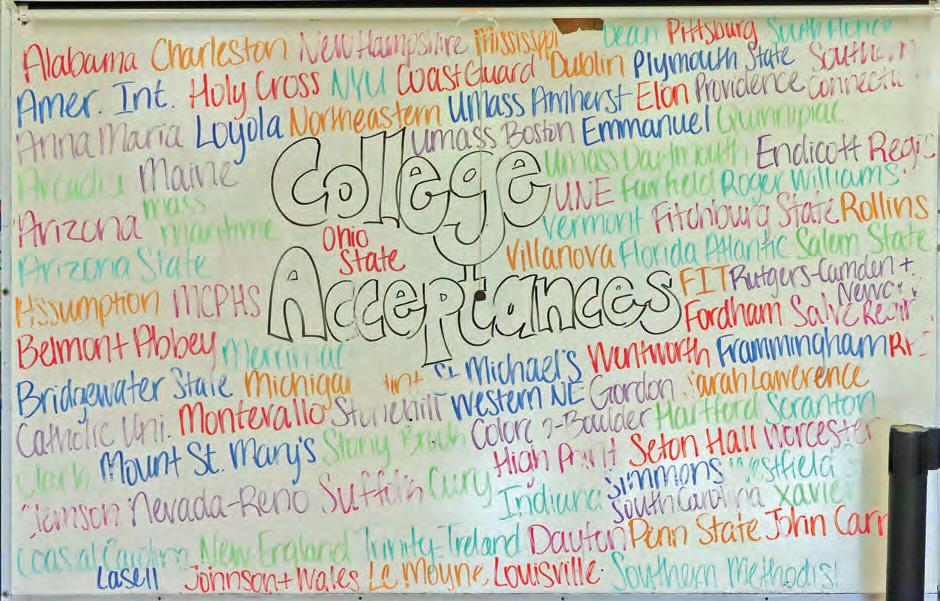 Alabama Charleston New Hampshire Mississippi Dean Pittsburg South
Amer. Int. Holy Cross NYU Coast Guard Dublin Plymouth State
Anna Maria Loyola Northeastern Umass Amherst Elon Providence
Umass Boston Emmanuel Quinnipiac
Arcadia Maine Umass Dartmouth Endicott Regis
mass maritime UNE Fairfield Roger Williams
Arizona Vermont Fitchburg State Rollins
College
Ohio State
Arizona State Villanova Florida Atlantic Salem State
Acceptances
Assumption MCPHS FIT Rutgers-Camden +
Fordham Salve
Belmont Abbey Merrimac Michael's Wentworth Frammingham
Bridgewater State Western NE Gordon Sarah Lawerence
Catholic Uni. Montevallo Stonehill Boulder Hartford Scranton
Clark Mount St. Mary's Stony High Seton Hall Worcester
Clemson Nevada-Reno Suffolk Indiana Simmons Westfield
South Carolina Xavier
Coastal New England Trinity-Ireland Dayton Penn State John
Lasell Johnson + Wales Le Moyne Louisville Southern